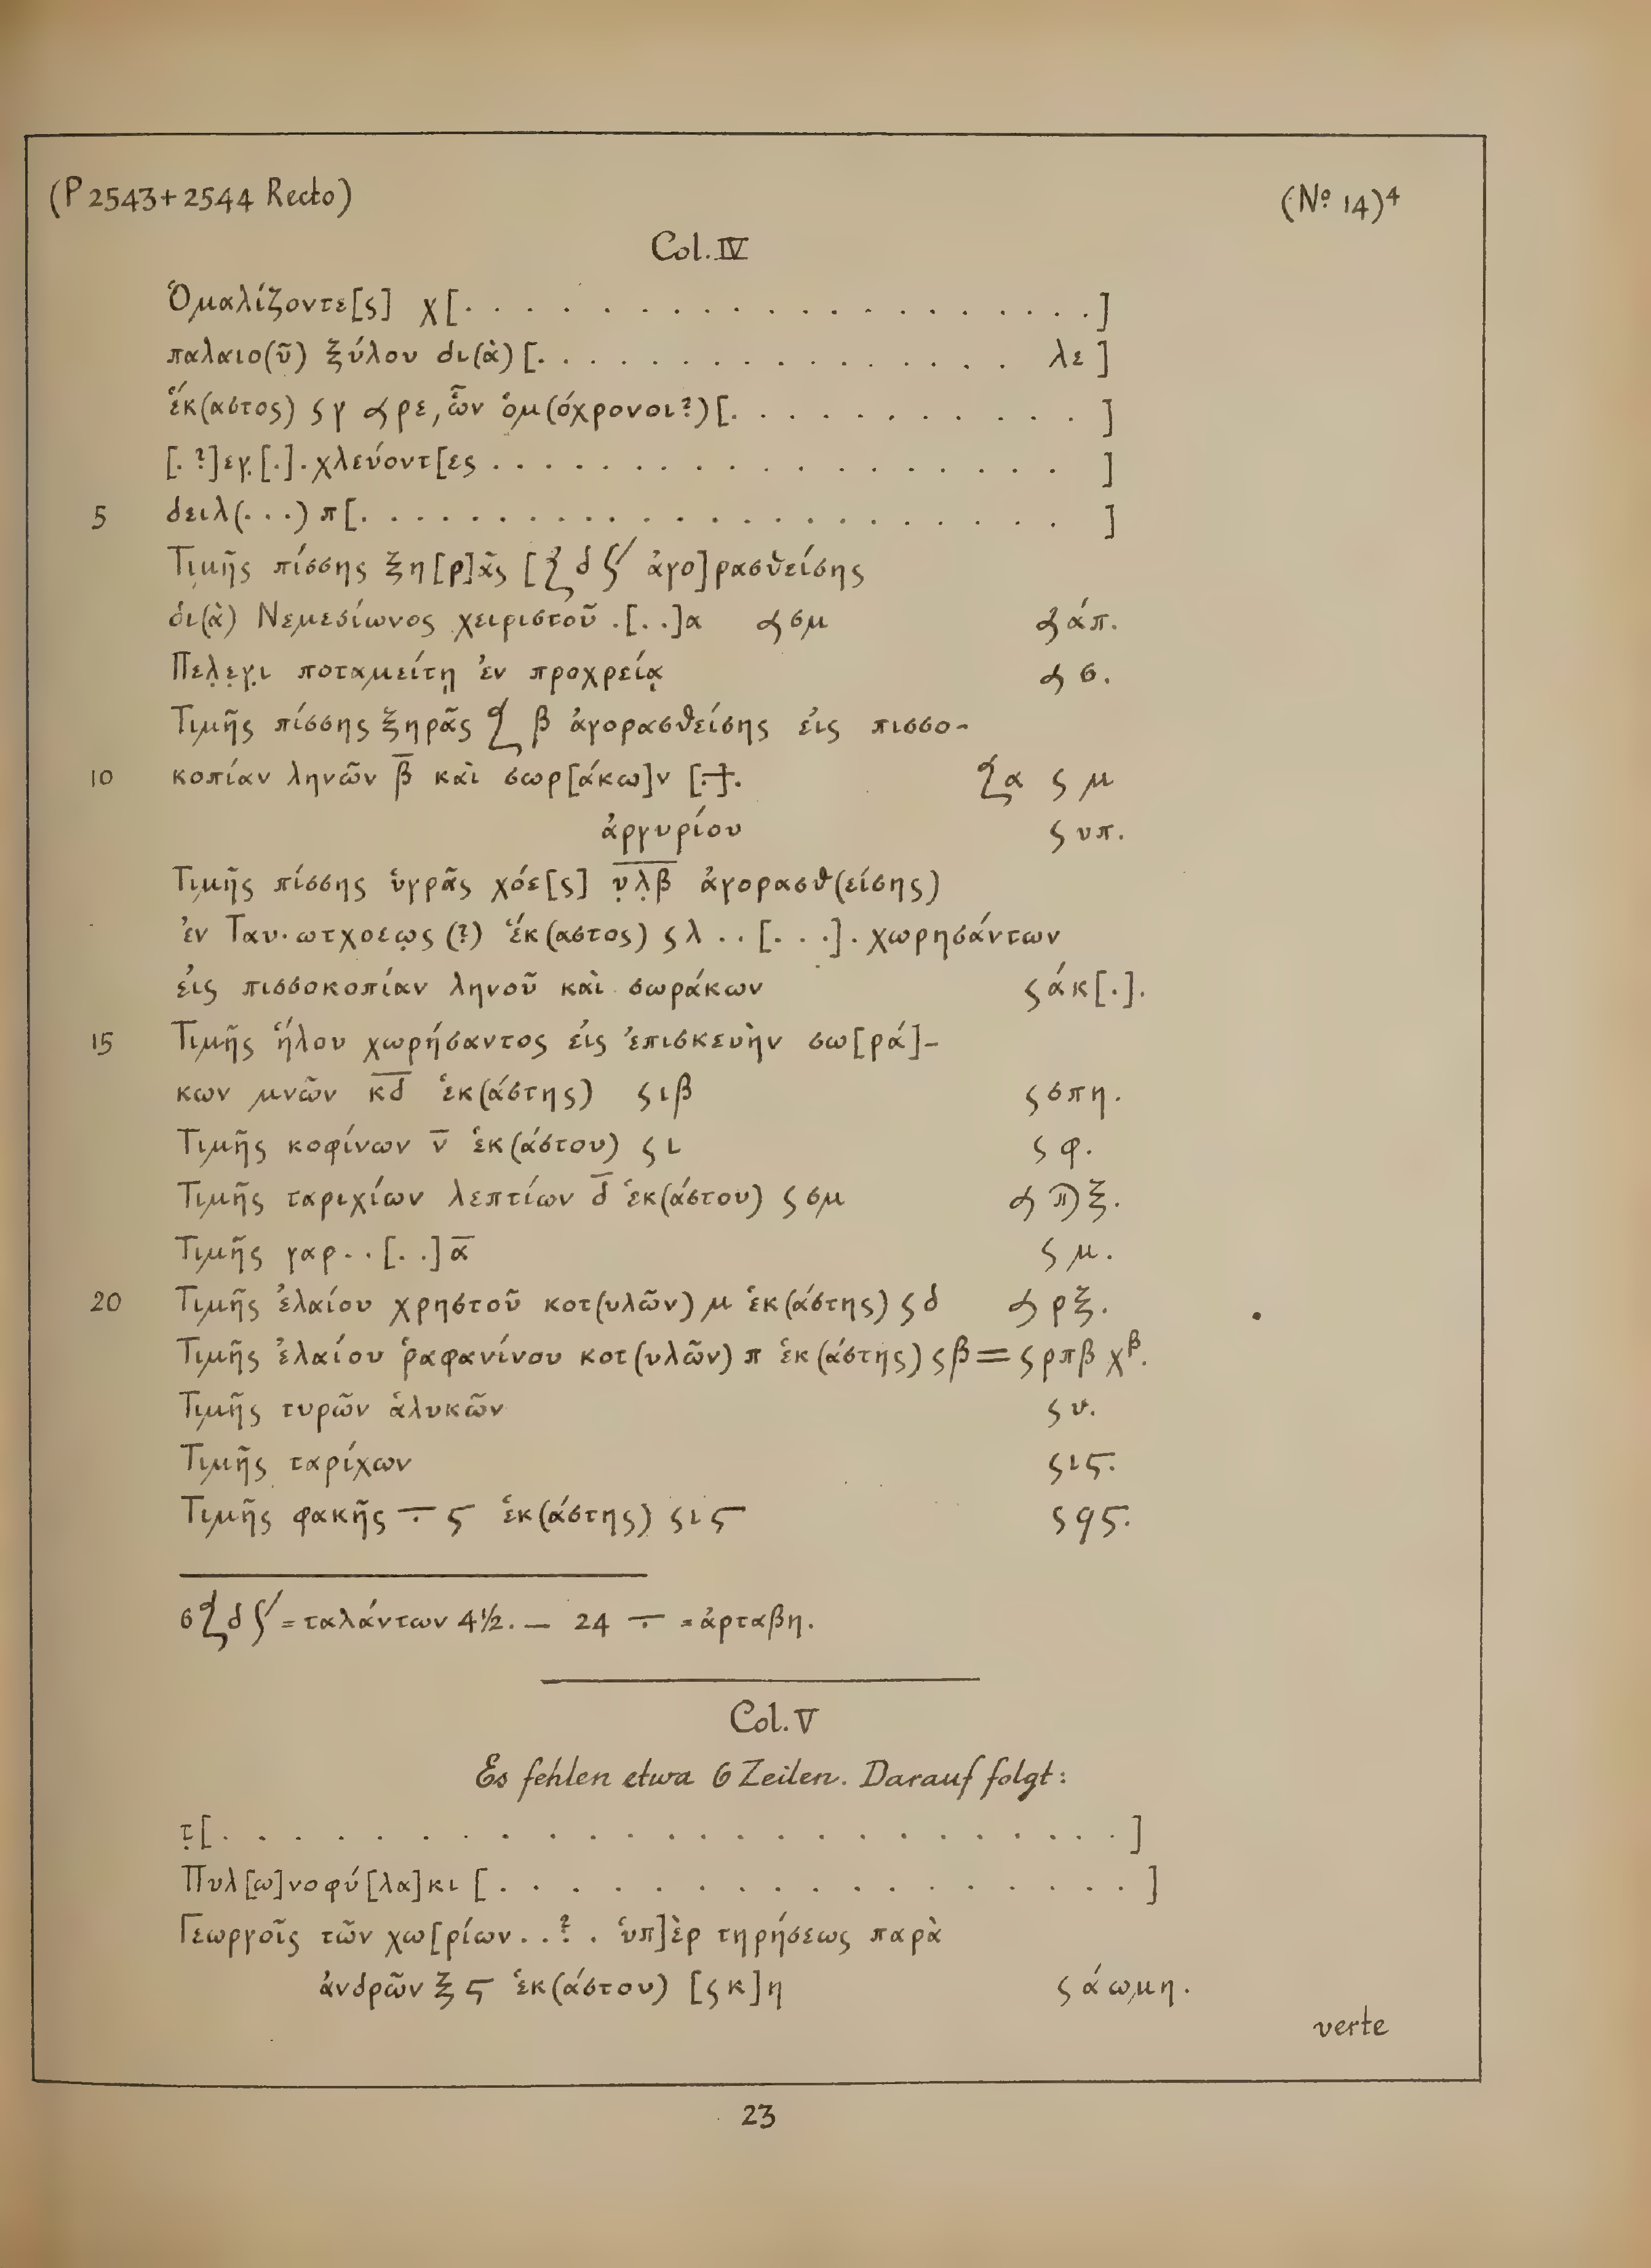 (P 2543+2544 Recto)
(Nº 14)⁴
Col. IV
Ὁμαλίζοντε[ς] χ[. . . . . . . . . . . . . . . . . . . .]
παλαιο(ῦ) ξύλου δι(ὰ) [. . . . . . . . . . . . . . . λε ]
ἕκ(αστος) ς γ 𐅻 ρε, ὧν ὁμ(όχρονοι?)[. . . . . . . . . . . . ]
[. ?]εγ̣[.].χλεύοντ[ες . . . . . . . . . . . . . . . . . ]
5 δειλ(. . .) π[. . . . . . . . . . . . . . . . . . . . . . ]
Τιμῆς πίσσης ξη[ρ]ᾶς [𐅺 δ 𐅵 ἀγο]ρασθείσης
δι(ὰ) Νεμεσίωνος χειριστοῦ .[. .]α 𐅻 σμ 𐅻 άπ.
Πελ̣ε̣γ̣ι ποταμείτῃ ἐν προχρείᾳ 𐅻 σ.
Τιμῆς πίσσης ξηρᾶς 𐅺 β ἀγορασθείσης εἰς πισσο-
10 κοπίαν ληνῶν β̅ καὶ σωρ[άκω]ν [.+]. 𐅺α ς μ
ἀργυρίου ς υπ.
Τιμῆς πίσσης ὑγρᾶς χόε[ς] υ̣̅λ̣̅β̅ ἀγορασθ(είσης)
ἐν Ταυ.ωτχοεω̣ς (?) ἕκ(αστος) ς λ . . [. . .]. χωρησάντων
εἰς πισσοκοπίαν ληνοῦ καὶ σωράκων ς άκ[.].
15 Τιμῆς ἥλου χωρήσαντος εἰς ἐπισκευὴν σω[ρά]-
κων μνῶν κ̅δ̅ ἑκ(άστης) ς ιβ ς σπη.
Τιμῆς κοφίνων ν̅ ἑκ(άστου) ς ι ς φ.
Τιμῆς ταριχίων λεπτίων δ̅ ἑκ(άστου) ς σμ 𐅻 ϡξ.
Τιμῆς γαρ. . [. .] α̅ ς μ.
20 Τιμῆς ἐλαίου χρηστοῦ κοτ(υλῶν) μ ἑκ(άστης) ς δ 𐅻 ρξ.
Τιμῆς ἐλαίου ῥαφανίνου κοτ(υλῶν) π ἑκ(άστης) ς β = ς ρπβ χᵝ.
Τιμῆς τυρῶν ἁλυκῶν ς ν.
Τιμῆς ταρίχων ς ιϛ.
Τιμῆς φακῆς ⨪ ϛ ἑκ(άστης) ς ιϛ ς ϟϛ.
6 𐅺 δ 𐅵 = ταλάντων 4½. — 24 ⨪ = ἀρταβη.
Col. V
Es fehlen etwa 6 Zeilen. Darauf folgt:
τ̣[. . . . . . . . . . . . . . . . . . . . . . . ]
Πυλ[ω]νοφύ[λα]κι [. . . . . . . . . . . . . . . . . ]
Γεωργοῖς τῶν χω[ρίων . . ? . ὑπ]ὲρ τηρήσεως παρὰ
ἀνδρῶν ξϛ ἑκ(άστου) [ς κ]η ς άωμη.
verte
23